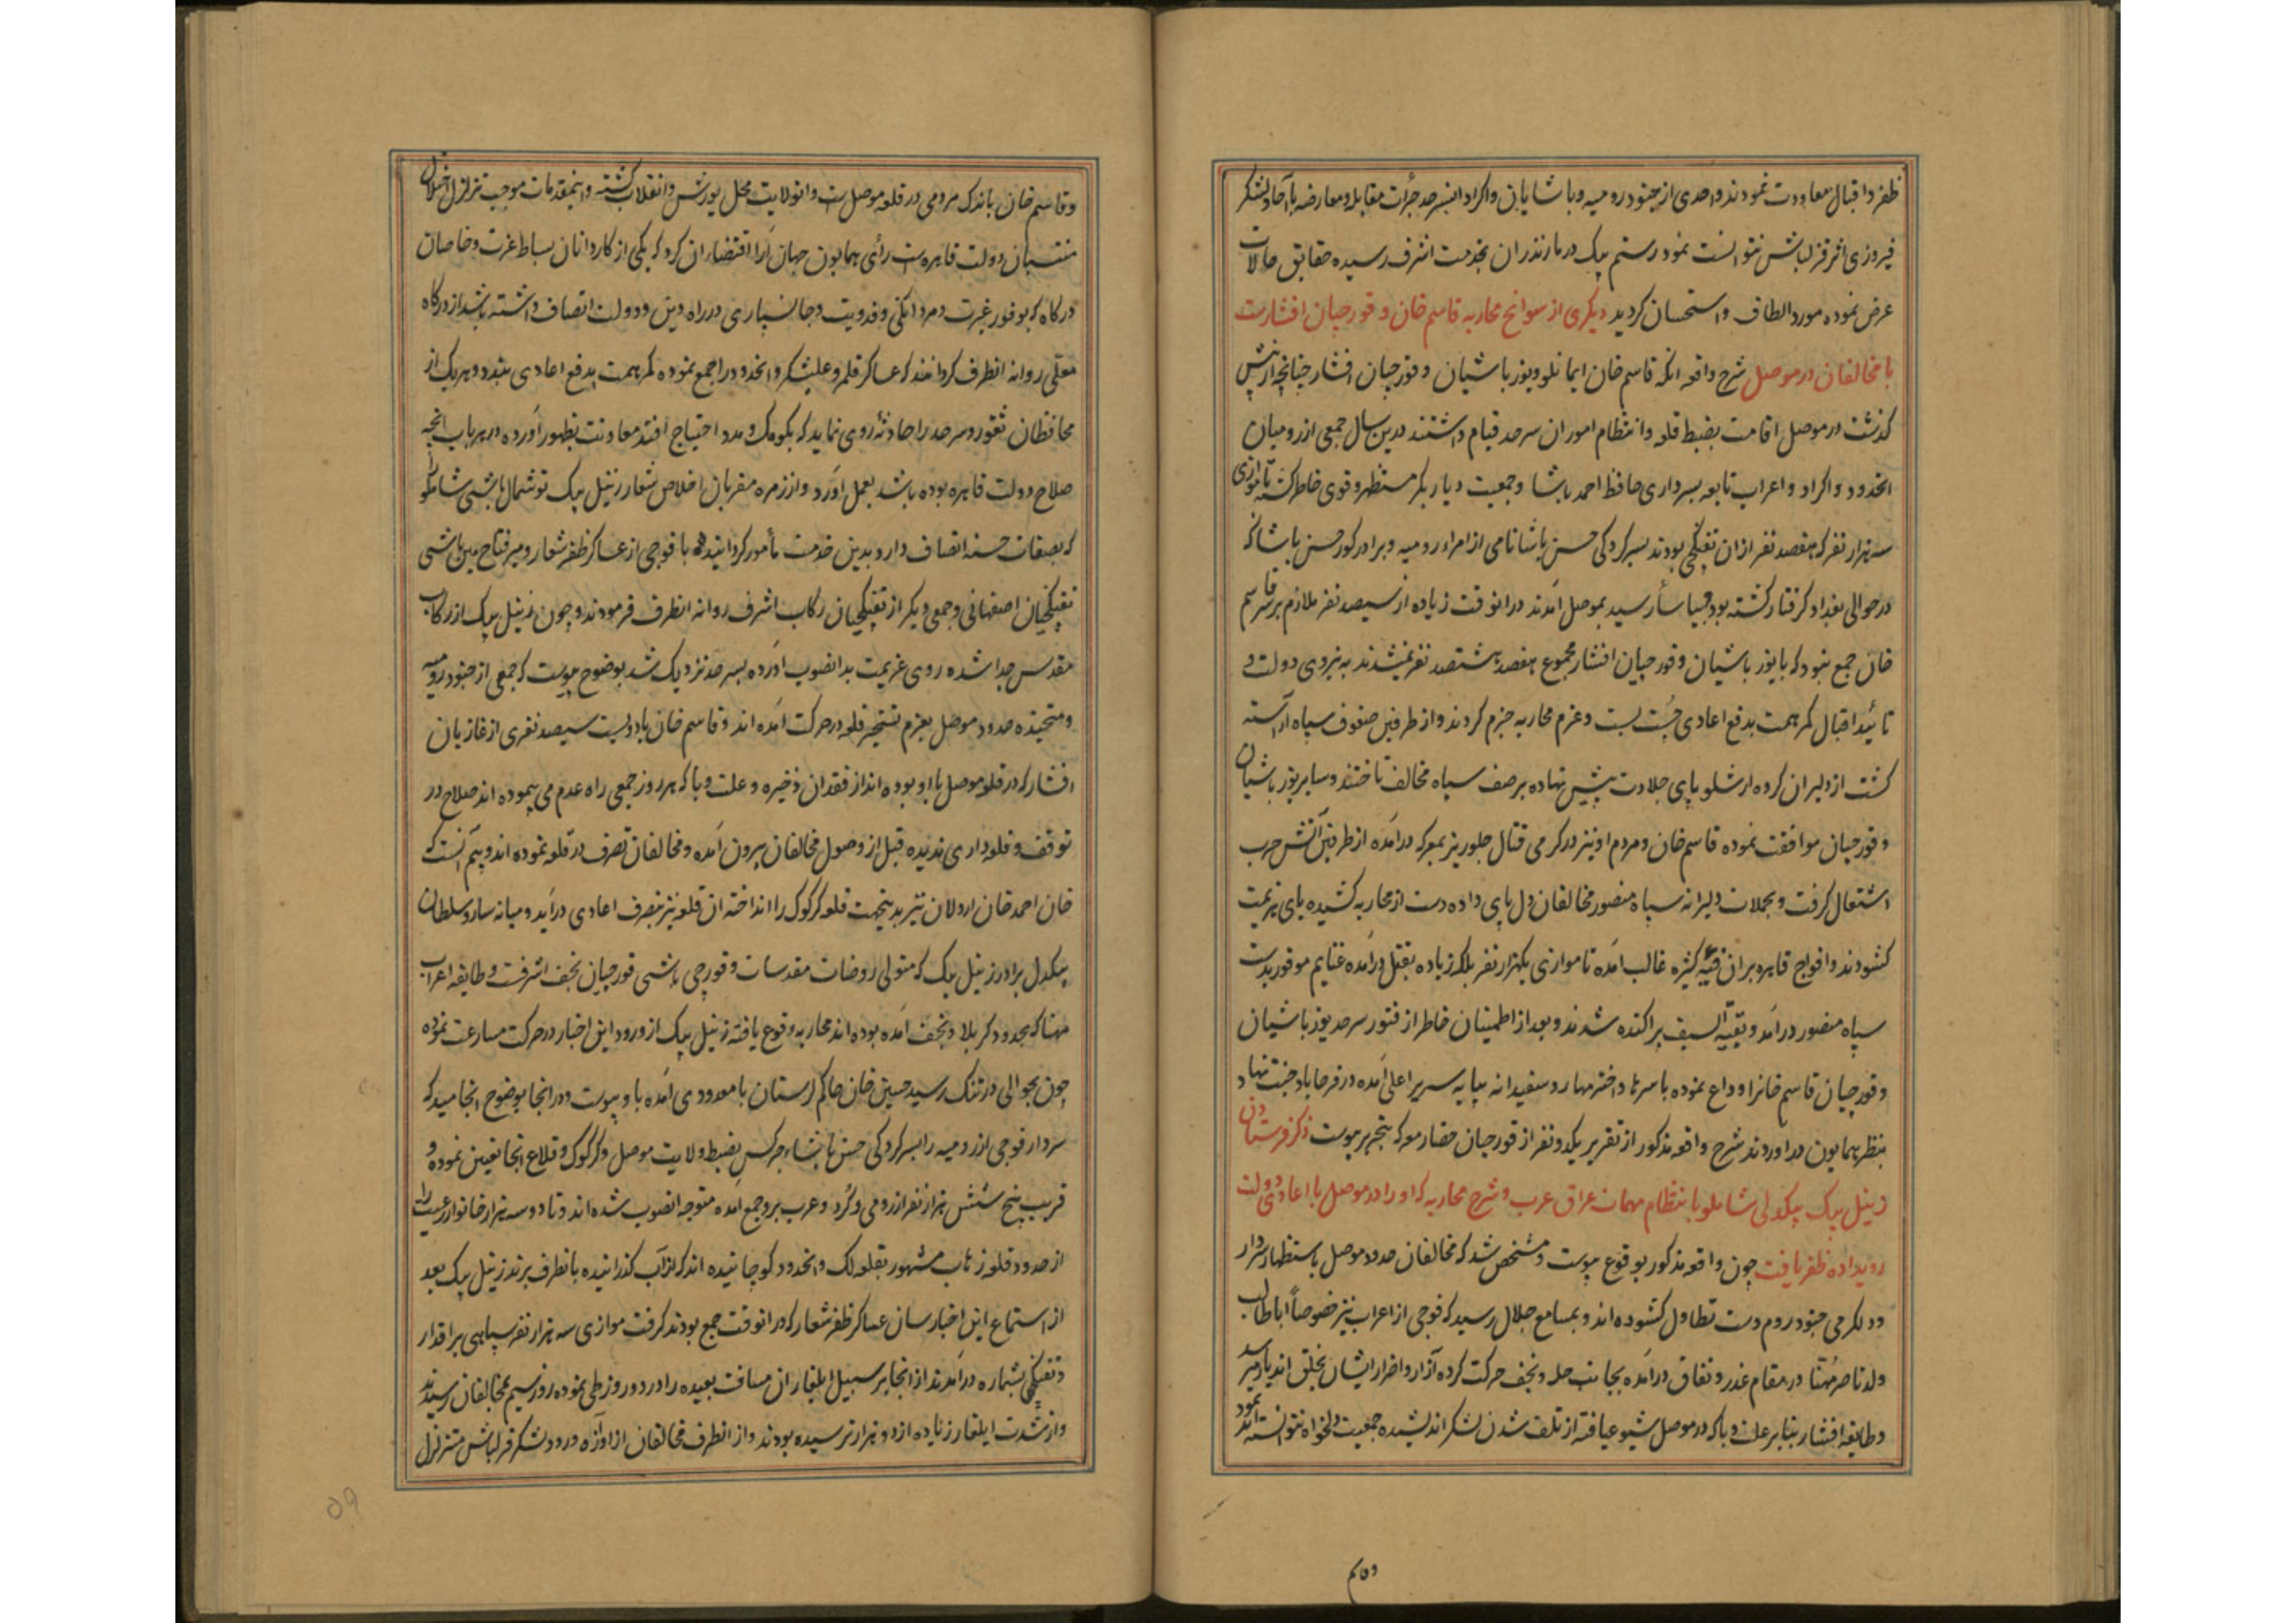 ظفر و اقبال معاودت نمودند و احدی از جنود رومیه و پاشایان و اکراد انسرحد جرأت مقابله و معارضه با آحاد لشکر
فیروزی اثر قزلباش نتوانست نمود رستم بیک در مازندران بخدمت اشرف رسیده حقایق حالات
عرض نموده مورد الطاف و استحسان کردید دیکری از سوانح محاربه قاسم خان و قورچیان افشارست
با مخالفان در موصل شرح واقعه انکه قاسم خان ایمانلو و یوزباشیان و قورچیان افشار چنانچه از پیش
کذشت در موصل اقامت بضبط قلعه و انتظام امور ان سرحد قیام داشتند درین سال جمعی از رومیان
انحدود و اکراد و اعراب تابعه بسرداری حافظ احمد پاشا و جمعیت دیار بکر مستظهر و قوی خاطر کشته تا موازی
سه هزار نفر که هفتصد نفر از ان تفنکچی بودند بسرکردکی حسن پاشا نامی از امراء رومیه و برادر کور حسن پاشا که
در حوالی بغداد کرفتار کشته بود بموصل آمدند در انوقت زیاده از سیصد نفر ملازم بر سر قاسم
خان جمع نبود که با یوزباشیان و قورچیان افشار مجموع هفتصد هشتصد نفر نمیشدند به نیروی دولت و
تائید اقبال کمر همت بدفع اعادی چست بست و عزم محاربه جزم کردند و از طرفین صفوف سپاه آراسته
کشت از دلیران کروه ارشلو پای جلادت پیش نهاده بر صف سپاه مخالف تاختند و سایر یوزباشیان
و قورچیان موافقت نموده قاسم خان و مردم او نیز در کرمی قتال جلوریز بمعرکه درآمده از طرفین آتش حرب
اشتعال کرفت و بحملات دلیرانه سپاه منصور مخالفان دل بای داده دست از محاربه کشیده پای هزیمت
کشودند و افواج قاهره بران فئیه کثیره غالب آمده تا موازی یکهزار نفر بلکه زیاده بقتل درآمده غنایم موفور بدست
سپاه منصور درآمد و بقیه السیف پراکنده شدند و بعد از اطمینان خاطر از فتور سرحد یوزباشیان
و قورچیان قاسم خانرا وداع نموده با سرها و اخترمها روسفیدانه بپایه سریر اعلی آمده در فرحاباد جنت نهاد
بنظر همایون دراوردند شرح واقعه مذکور از تقریر یکدو نفر از قورچیان حضار معرکه بتحریر پیوست ذکر فرستادن
زینل بیک بیکدلی شاملو بانتظام مهمات عراق عرب و شرح محاربه که او را در موصل با اعادی دولت
رویداده ظفر یافت چون واقعه مذکور بوقوع پیوست و مشخص شد که مخالفان حدود موصل باستظهار سردار
و دلکرمی جنود روم دست تطاول کشوده اند و بمسامع جلال رسید که فوجی از اعراب نیز خصوصاً اباطالب
ولد ناصر مُهنّا در مقام غدر و نفاق درآمده بجانب حله و نجف حرکت کرده آزار و اضرار ایشان بخلق اندیار میرسد
و طایفه افشار بنابر علت وبا که در موصل شیوع یافته از تلف شدن لشکر اندیشیده جمعیت دلخواه نتوانسته اند نمود
وقاسم
و قاسم خان باندک مردمی در قلعه موصل ست و انولایت محل یورش و انقلاب کشته و اینمقدمات موجب تزلزل و اختلال
منتسبان دولت قاهره است رأی همایون جهان آرا اقتضاء ان کرد که یکی از کاردانان بساط عزت و خاصان
درکاه که بوفور غیرت و مردانکی و فدویت و جانسپاری در راه دین و دولت اتصاف داشته باشد از درکاه
معلّی روانه انطرف کردانند که عساکر قلمرو علیشکر و انحدود را جمع نموده کمر همت بدفع اعادی ببندد و هر یک از
محافظان ثغور و سرحد را حادثهٔ روی نماید که بکومک و مدد احتیاج افتد معاونت بظهور آورده در هر باب انچه
صلاح دولت قاهره بوده باشد بعمل آورد و از زمره مقربان اخلاص شعار زینل بیک توشمال باشی شاملو را
که بصفات حسنه اتصاف دارد بدین خدمت مأمور کردانیده با فوجی از عساکر ظفر شعار و میر فتاح مین باشی
تفنکچیان اصفهانی و جمعی دیکر از تفنکچیان رکاب اشرف روانه انطرف فرمودند و چون زینل بیک از رکاب
مقدس جدا شده روی عزیمت بدانصوب آورده بسرحد نزدیک شد بوضوح پیوست که جمعی از جنود رومیه
و متجنده حدود موصل بعزم تسخیر قلعه در حرکت آمده اند و قاسم خان با دویست سیصد نفری از غازیان
افشار که در قلعه موصل با او بوده اند از فقدان ذخیره و علت وبا که هر روز جمعی راه عدم می پیموده اند صلاح در
توقف و قلعه داری ندیده قبل از وصول مخالفان بیرون آمده و مخالفان تصرف در قلعه نموده اند و بیم آنست که
خان احمد خان اردلان نیز بدینجهت قلعه کرکوک را انداخته ان قلعه نیز بتصرف اعادی درآید و میانه سارو سلطان
بیکدلی برادر زینل بیک که متولی روضات مقدسات و قورچی باشی قورچیان نجف اشرفست و طایفه اعراب
مهنا که بحدود کربلا و نجف آمده بوده اند محاربه وقوع یافته زینل بیک از ورود این اخبار در حرکت مسارعت نموده
چون بحوالی درتنک رسید حسین خان حاکم لرستان با معدودی آمده باو پیوست و در انجا بوضوح انجامید که
سردار فوجی از رومیه را بسرکردکی حسن پاشاء چرکس بضبط ولایت موصل و کرکوک و قلاع انجا تعیین نموده و
قریب پنج شش هزار نفر از رومی و کُرد و عرب برو جمع آمده متوجه انصوب شده اند و تا دو سه هزار خانوار رعیت را
از حدود قلعه زاب مشهور بقلعه لک و انحدود کوچانیده اند که از آب کذرانیده بانطرف برند زینل بیک بعد
از استماع این اخبار سان عساکر ظفر شعار که در انوقت جمع بودند کرفت موازی سه هزار نفر سپاهی یراقدار
و تفنکچی بشماره درآمدند از انجا بر سبیل ایلغار ان مسافت بعیده را در دو روز طی نموده روز سیم بمخالفان رسیدند
و از شدت ایلغار زیاده از دو هزار نرسیده بودند و از انطرف مخالفان از اوازه ورود لشکر قزلباش متزلزل
۵۹